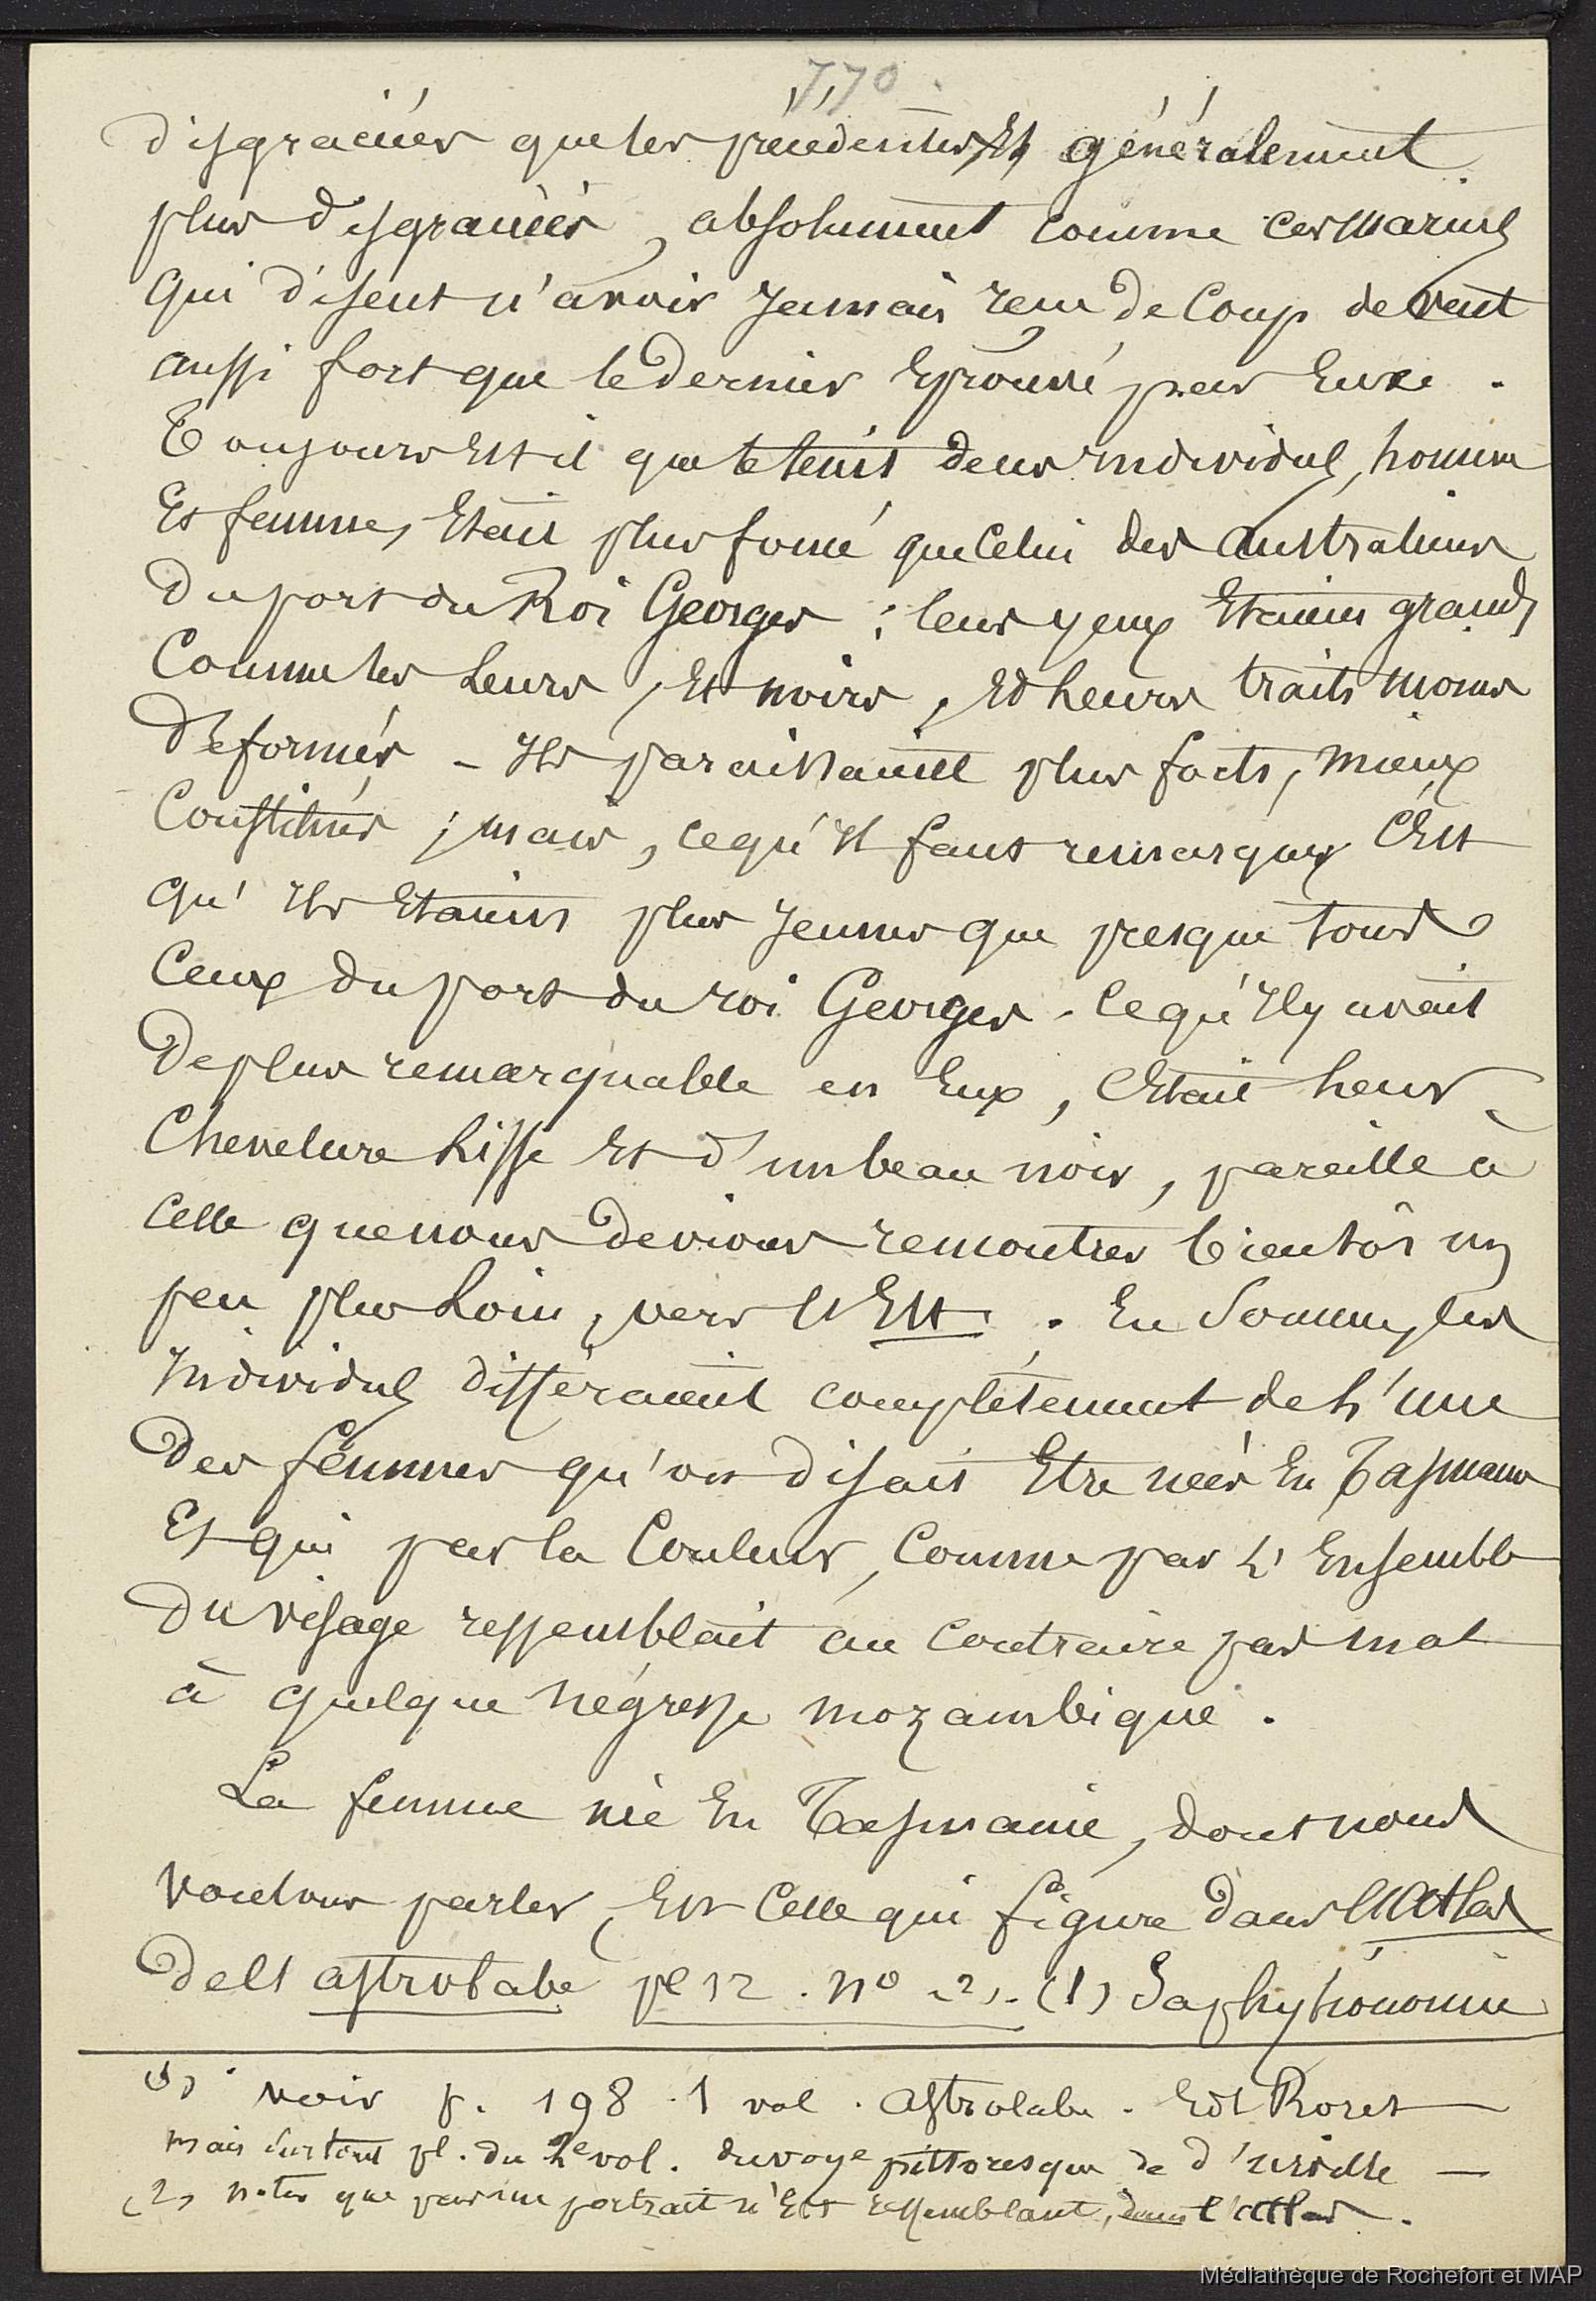 770
disgraciées que les précédentes, et généralement
plus disgraciées, absolument comme ces marins
qui disent n'avoir jamais reçu de coup de vent
aussi fort que le dernier éprouvé par eux.
Toujours est-il que le teint des individus, homme
et femme, était plus foncé que celui des australiens
du port du Roi Georges : leurs yeux étaient grands
comme les leurs, et noirs, et leurs traits moins
déformés - Ils paraissaient plus forts, mieux
constitués ; mais, ce qu'il faut remarquer c'est
qu'ils étaient plus jeunes que presque tous
ceux du port du roi Georges. Ce qu'il y avait
de plus remarquable en eux, c'était leur
chevelure lisse et d'un beau noir, pareille à
celle que nous devions rencontrer bientôt un
peu plus loin, vers l'Est. En somme, les
individus différaient complètement de l'une
des femmes qu'on disait être née en Tasmanie
et qui par la couleur, comme par l'ensemble
du visage ressemblait au contraire pas mal
à quelque négresse mozambique.
La femme née en Tasmanie, dont nous
voulons parler, est celle qui figure dans l'Atlas
de l'astrolabe pl 12. nº 2. (1) Sa physionomie
(1) voir p. 198. 1 vol. astrolabe. Edt Roret
mais surtout pl. du 2e vol. du voye pittoresque de d'urville —
(2) noter que pas un portrait n'est ressemblant, dans l'atlas.
Médiathèque de Rochefort et MAP